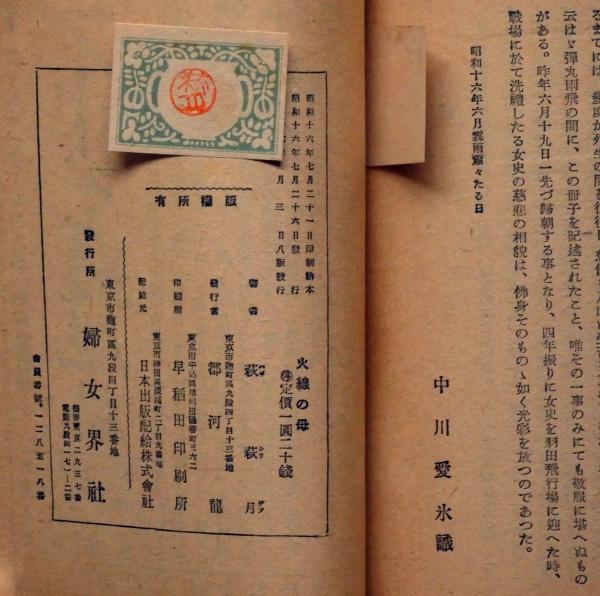 るまでには、幾度か死生の間を往復し
云はゞ彈丸雨飛の間に、この冊子を記述されたこと、唯その一事のみにても敬服に堪へぬもの
がある。昨年六月十九日一先づ歸朝する事となり、四年振りに女史を羽田飛行場に迎へた時、
戰場に於て洗禮したる女史の慈悲の相貌は、佛身そのものゝ如く光彩を放つのであつた。
昭和十六年六月雲雨蕭々たる日
中川愛氷識
昭和十六年七月二十一日印刷納本
昭和十六年七月二十六日發行
月三日八版發行
版權所有
火線の母
定價一圓二十錢
著者 萩萩月
東京市麴町區九段四丁目十三番地
發行者 都河龍
印刷所 早稻田印刷所
東京市神田區淡路町二丁目九番地
配給元 日本出版配給株式會社
東京市麴町區九段四丁目十三番地
發行所 婦女界社
振替東京二九三七番
電話九段四一七一—二番
會員番號、一二八五一八番